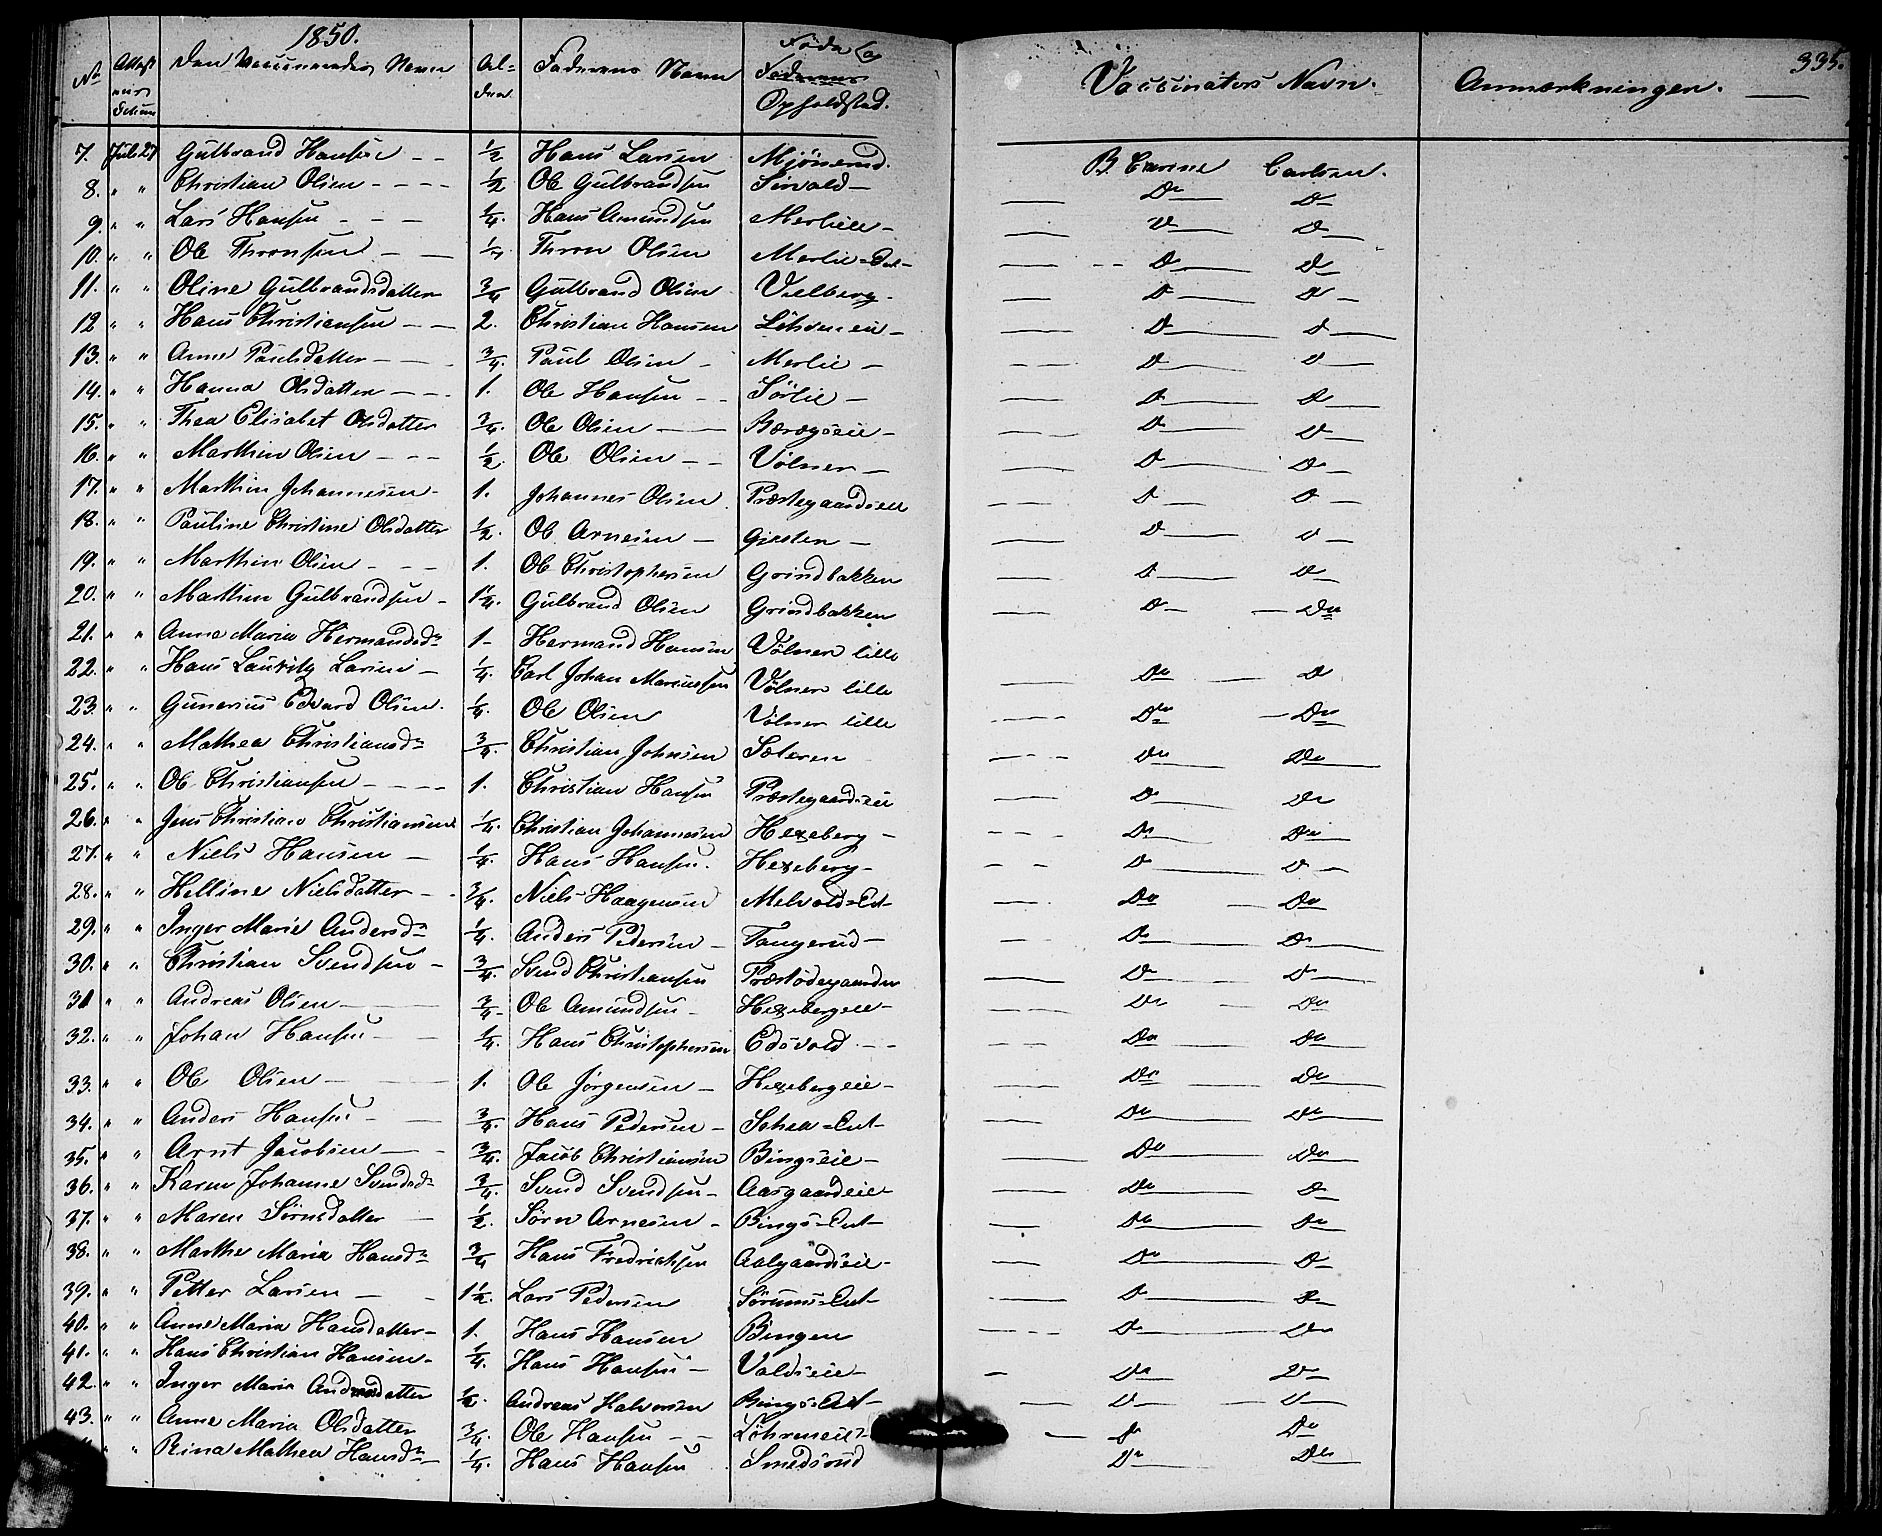 1850.
335.
No Attest Den Vaccineredes Navn Al- Faderens Navn Føde Vaccinators Navn. Anmærkninger.
Faderens
Opholdsted.
7. Juli 27 Gulbrand Hansen 1/2 Hans Larsen Mjønerud. B. Carine Carlsen.
8. " " Christian Olsen 1/2 Ole Gulbrandsen Sørvald Do Do
9. " " Lars Hansen 1/4. Hans Amundsen Merlieie Do Do
10. " " Ole Thronsen Thron Olsen Merlie Do Do
11. " " Oline Gulbrandsdatter 3/4 Gulbrand Olsen Vielberg Do Do
12 " " Hans Christiansen 2. Christian Hansen Do Do
13. " " Anne Paulsdatter 3/4. Paul Olsen Merlie Do Do
14. " " Hanna Olsdatter 1. Ole Hansen Sørlie Do Do
15. " " Thea Elisabet Olsdatter 3/4. Ole Olsen Do Do
16. " " Marthin Olsen 1/2 Ole Olsen Vølner Do Do
17. " " Marthin Johannesen 1. Johannes Olsen Præstegaardseie Do Do
18. " " Pauline Christine Olsdatter 1/2. Ole Arnesen Gjesten Do Do
19. " " Marthin Olsen 1. Ole Christophersen Grindbakken Do Do
20. " " Marthin Gulbrandsen 1 1/4. Gulbrand Olsen Grindbakken Do Do
21. " " Anne Maria Hermandsdr 1 Hermand Hansen Vølner lille
22. " " Hans Lauritz Larsen 1/4. Carl Johan Marcussen Vølner lille Do Do
23. " " Gunerius Edvard Olsen. 1/4. Ole Olsen Vølner lille Do Do
24. " " Mathea Christiansdr 3/4. Christian Johnsen Sæteren Do Do
25. " " Ole Christiansen 1. Christian Hansen Præstegaardseie Do Do
26. " " Jens Christian Christiansen 1/4. Christian Johannesen Hexeberg Do Do
27. " " Niels Hansen 1/4. Hans Hansen. Hexeberg Do Do
28. " " Helline Nielsdatter 3/4. Niels Haagensen Melvold Do Do
29. " " Inger Marie Andersdr 1/4. Anders Pedersen Tangerud Do Do
30. " " Christian Svendsen 3/4. Svend Christiansen Do Do
31 " " Andreas Olsen 3/4 Ole Amundsen Hexebergeie Do Do
32. " " Johan Hansen 1/4. Hans Christophersen Edsvold Do Do
33. " " Ole Olsen 1. Ole Jørgensen Hexebergeie Do Do
34. " " Anders Hansen 3/4. Hans Pedersen Do Do
35. " " Arnt Jacobsen 3/4. Jacob Christiansen Bingseie Do Do
36. " " Karen Johanne Svendsdr 3/4. Svend Svendsen Aasgaardeie Do Do
37. " " Maren Sørnsdatter 1/2. Sørn Arnesen Do Do
38. " " Marthe Maria Hansdr 3/4 Hans Fredrichsen Aalgaardseie Do Do
39. " " Petter Larsen 1 1/2. Lars Pedersen Do Do
40. " " Anne Maria Hansdatter 1. Hans Hansen Bingen Do Do
41. " " Hans Christian Hansen 1/4. Hans Hansen Valdseie Do Do
42. " " Inger Maria Andreasdatter 1/2. Andreas Halvorsen Do Do
43. " " Anne Maria Olsdatter 3/4. Ole Hansen Do Do
" " Rina Mathea Hansdr 1/4. Hans Hansen Smedsrud Do Do